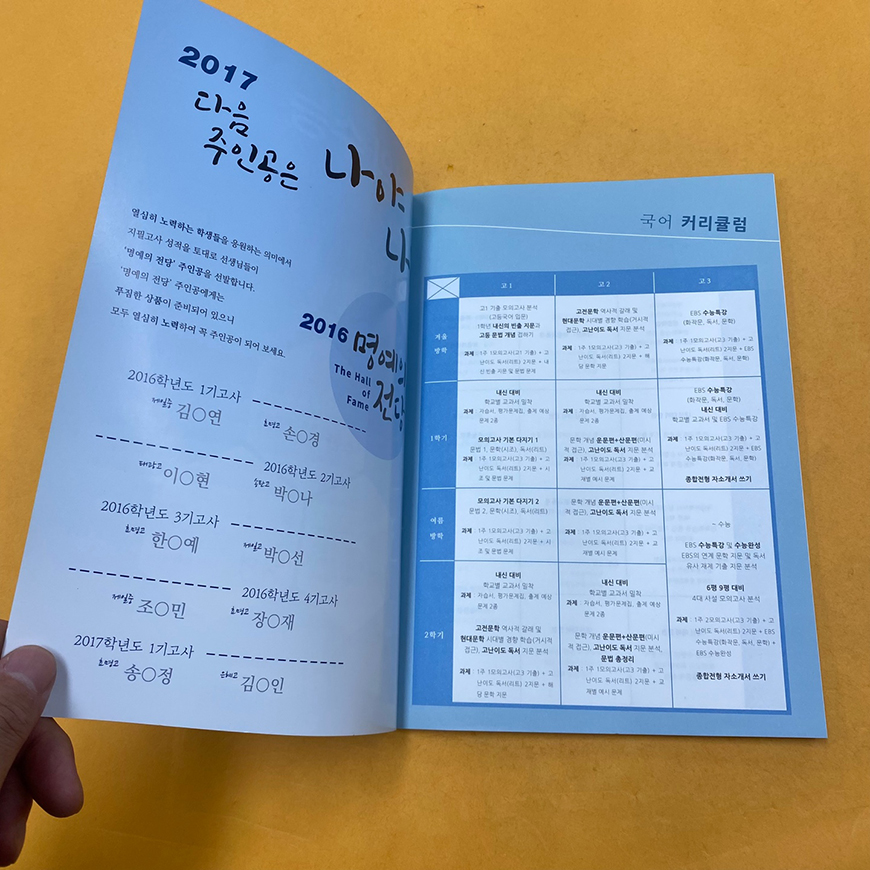 2017
다음
주인공은 나야
나
열심히 노력하는 학생들을 응원하는 의미에서
지필고사 성적을 토대로 선생님들이
'명예의 전당' 주인공을 선발합니다.
'명예의 전당' 주인공에게는
푸짐한 상품이 준비되어 있으니
모두 열심히 노력하여 꼭 주인공이 되어 보세요.
2016 명예의
전당
The Hall
of
Fame
2016학년도 1기고사
제일중 김○연
효명고 손○경
태광고 이○현
2016학년도 2기고사
박○나
2016학년도 3기고사
효명고 한○예
제일고 박○선
제일중 조○민
2016학년도 4기고사
효명고 장○재
2017학년도 1기고사
효명고 송○정
은혜고 김○인
국어 커리큘럼
고1
고2
고3
겨울
방학
고1 기출 모의고사 분석
(고등국어 입문)
1학년 내신의 빈출 지문과
고등 문법 개념 접하기
과제 : 1주 1모의고사(고3 기출) + 고
난이도 독서(리트) 2지문 + 내
신 빈출 지문 및 문법 문제
고전문학 역사적 갈래 및
현대문학 시대별 경향 학습(거시적
접근), 고난이도 독서 지문 분석
과제 : 1주 1모의고사(고3 기출) + 고
난이도 독서(리트) 2지문 + 해
당 문학 지문
EBS 수능특강
(화작문, 독서, 문학)
과제 : 1주 1모의고사(고3 기출) + 고
난이도 독서(리트) 2지문 + EBS
수능특강(화작문, 독서, 문학)
1학기
내신 대비
학교별 교과서 밀착
과제 : 자습서, 평가문제집, 출제 예상
문제 2종
모의고사 기본 다지기 1
문법 1, 문학(시조), 독서(리트)
과제 : 1주 1모의고사(고3 기출) + 고
난이도 독서(리트) 2지문 + 시
조 및 문법 문제
내신 대비
학교별 교과서 밀착
과제 : 자습서, 평가문제집, 출제 예상
문제 2종
문학 개념 운문편+산문편(미시
적 접근), 고난이도 독서 지문 분석
과제 : 1주 1모의고사(고3 기출) + 고
난이도 독서(리트) 2지문 + 교
재별 예시 문제
EBS 수능특강
(화작문, 독서, 문학)
내신 대비
학교별 교과서 및 EBS 수능특강
과제 : 1주 1모의고사(고3 기출) + 고
난이도 독서(리트) 2지문 + EBS
수능특강(화작문, 독서, 문학)
종합전형 자소개서 쓰기
여름
방학
모의고사 기본 다지기 2
문법 2, 문학(시조), 독서(리트)
과제 : 1주 1모의고사(고3 기출) + 고
난이도 독서(리트) 2지문 + 시
조 및 문법 문제
문학 개념 운문편+산문편(미시
적 접근), 고난이도 독서 지문 분석
과제 : 1주 1모의고사(고3 기출) + 고
난이도 독서(리트) 2지문 + 교
재별 예시 문제
~ 수능
EBS 수능특강 및 수능완성
EBS의 연계 문학 지문 및 독서
유사 재제 기출 지문 분석
6평 9평 대비
4대 사설 모의고사 분석
과제 : 1주 2모의고사(고3 기출) + 고
난이도 독서(리트) 2지문 + EBS
수능특강(화작문, 독서, 문학)
+ EBS 수능완성
종합전형 자소개서 쓰기
2학기
내신 대비
학교별 교과서 밀착
과제 : 자습서, 평가문제집, 출제 예상
문제 2종
고전문학 역사적 갈래 및
현대문학 시대별 경향 학습(거시적
접근), 고난이도 독서 지문 분석
과제 : 1주 1모의고사(고3 기출) + 고
난이도 독서(리트) 2지문 + 해
당 문학 지문
내신 대비
학교별 교과서 밀착
과제 : 자습서, 평가문제집, 출제 예상
문제 2종
문학 개념 운문편+산문편(미시
적 접근), 고난이도 독서 지문 분석,
문법 총정리
과제 : 1주 1모의고사(고3 기출) + 고
난이도 독서(리트) 2지문 + 교
재별 예시 문제